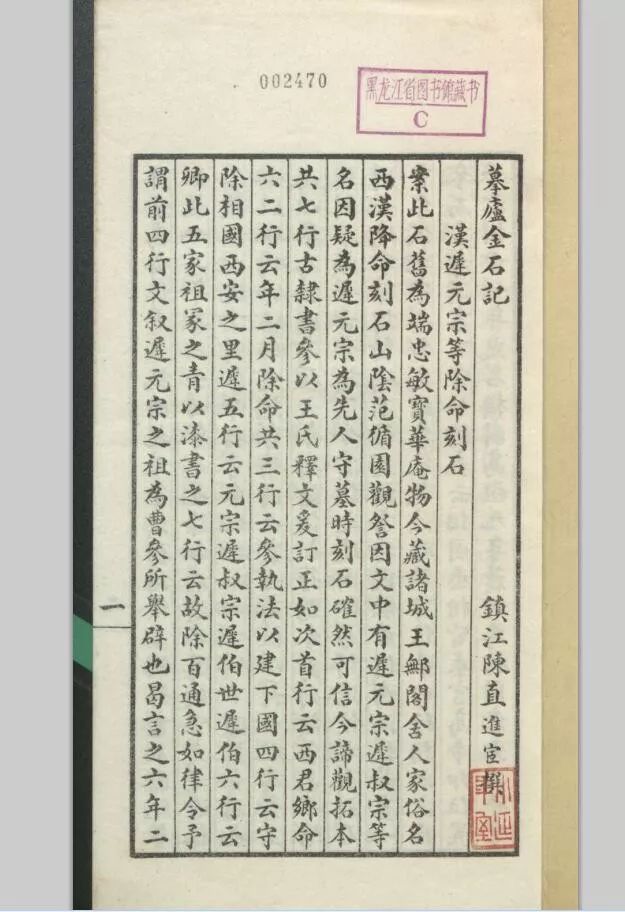 002470
黑龙江省图书馆藏书
C
摹廬金石記
鎮江陳直進宧撰
漢遲元宗等除命刻石
案此石舊為端忠敏寶華庵物今藏諸城王鄦閣舍人家俗名
西漢降命刻石山陰范循園觀詧因文中有遲元宗遲叔宗等
名因疑為遲元宗為先人守墓時刻石確然可信今諦觀拓本
共七行古隸書參以王氏釋文爰訂正如次首行云西君鄉命
六二行云年二月除命共三行云參執法以建下國四行云守
除相國西安之里遲五行云元宗遲叔宗遲伯世遲伯六行云
卿此五家祖冢之青以漆書之七行云故除百通急如律令予
謂前四行文叙遲元宗之祖為曹參所舉辟也曷言之六年二
一